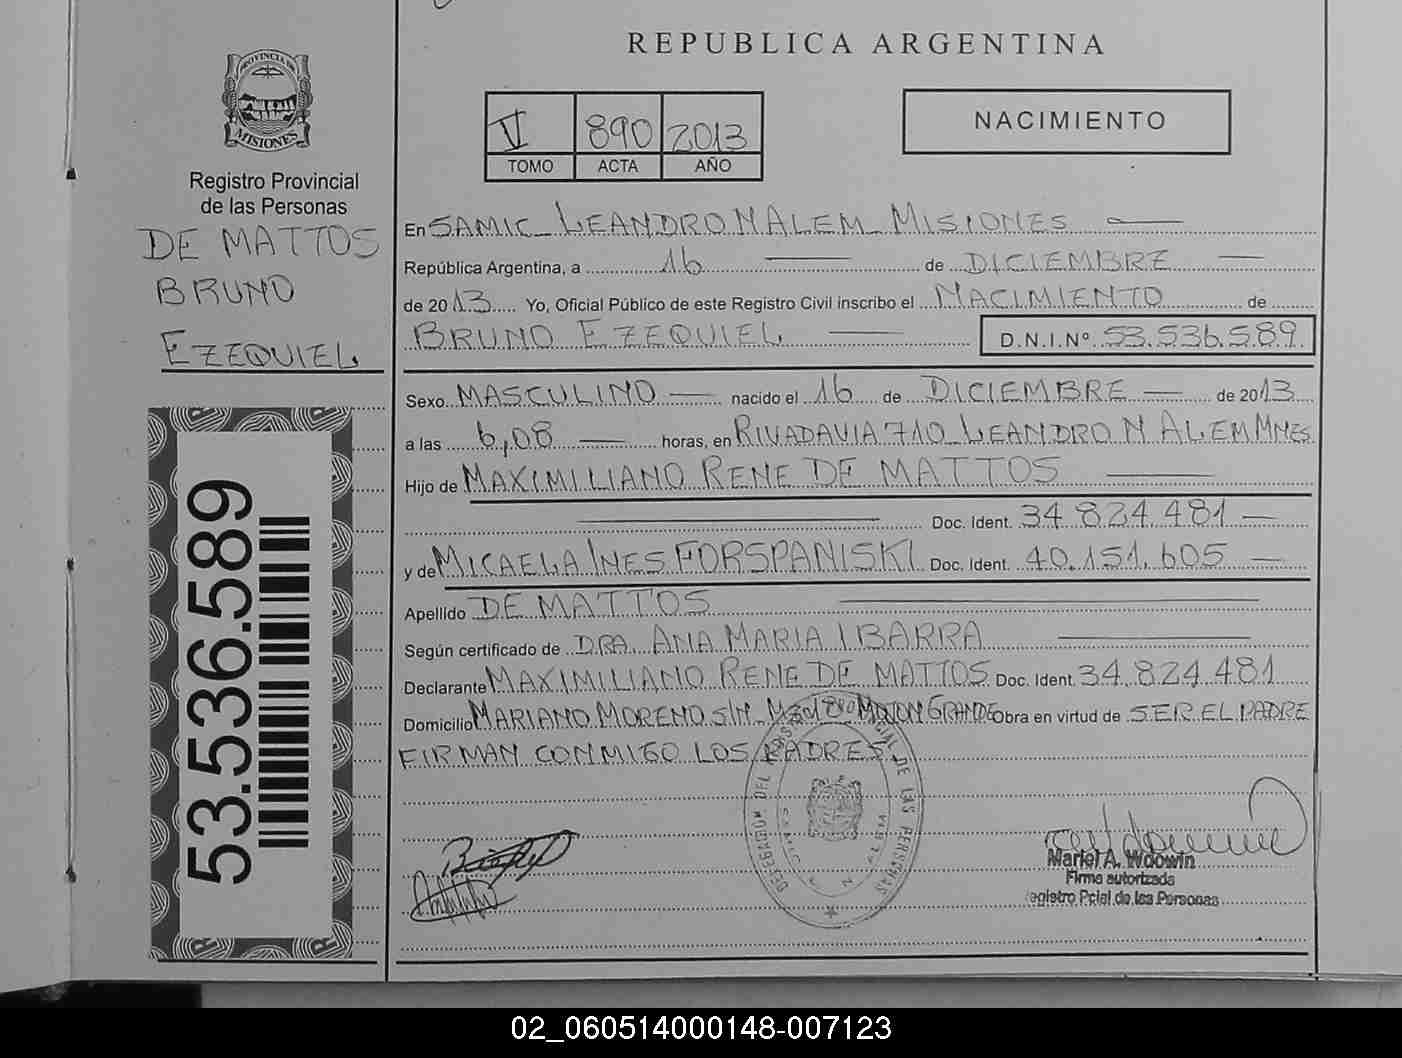 REPUBLICA ARGENTINA
PROVINCIA DE
MISIONES
Registro Provincial
de las Personas
DE MATTOS
BRUNO
EZEQUIEL
53.536.589
V 890 2013
TOMO ACTA AÑO
NACIMIENTO
En SAMIC LEANDRO N ALEM MISIONES
República Argentina, a 16 de DICIEMBRE
de 2013 Yo, Oficial Público de este Registro Civil inscribo el NACIMIENTO de
BRUNO EZEQUIEL D.N.I.Nº 53.536.589
Sexo MASCULINO nacido el 16 de DICIEMBRE de 2013
a las 6,08 horas, en RIVADAVIA 710 LEANDRO N ALEM MNES
Hijo de MAXIMILIANO RENE DE MATTOS
Doc. Ident. 34.824.481
y de MICAELA INES FORSPANISKI Doc. Ident. 40.151.605
Apellido DE MATTOS
Según certificado de DRA. ANA MARIA IBARRA
Declarante MAXIMILIANO RENE DE MATTOS Doc. Ident. 34.824.481
Domicilio MARIANO MORENO S/N MOJON GRANDE Obra en virtud de SER EL PADRE
FIRMAN CONMIGO LOS PADRES
Mariel A. Woowin
Firma autorizada
Registro Pcial de las Personas
02_060514000148-007123